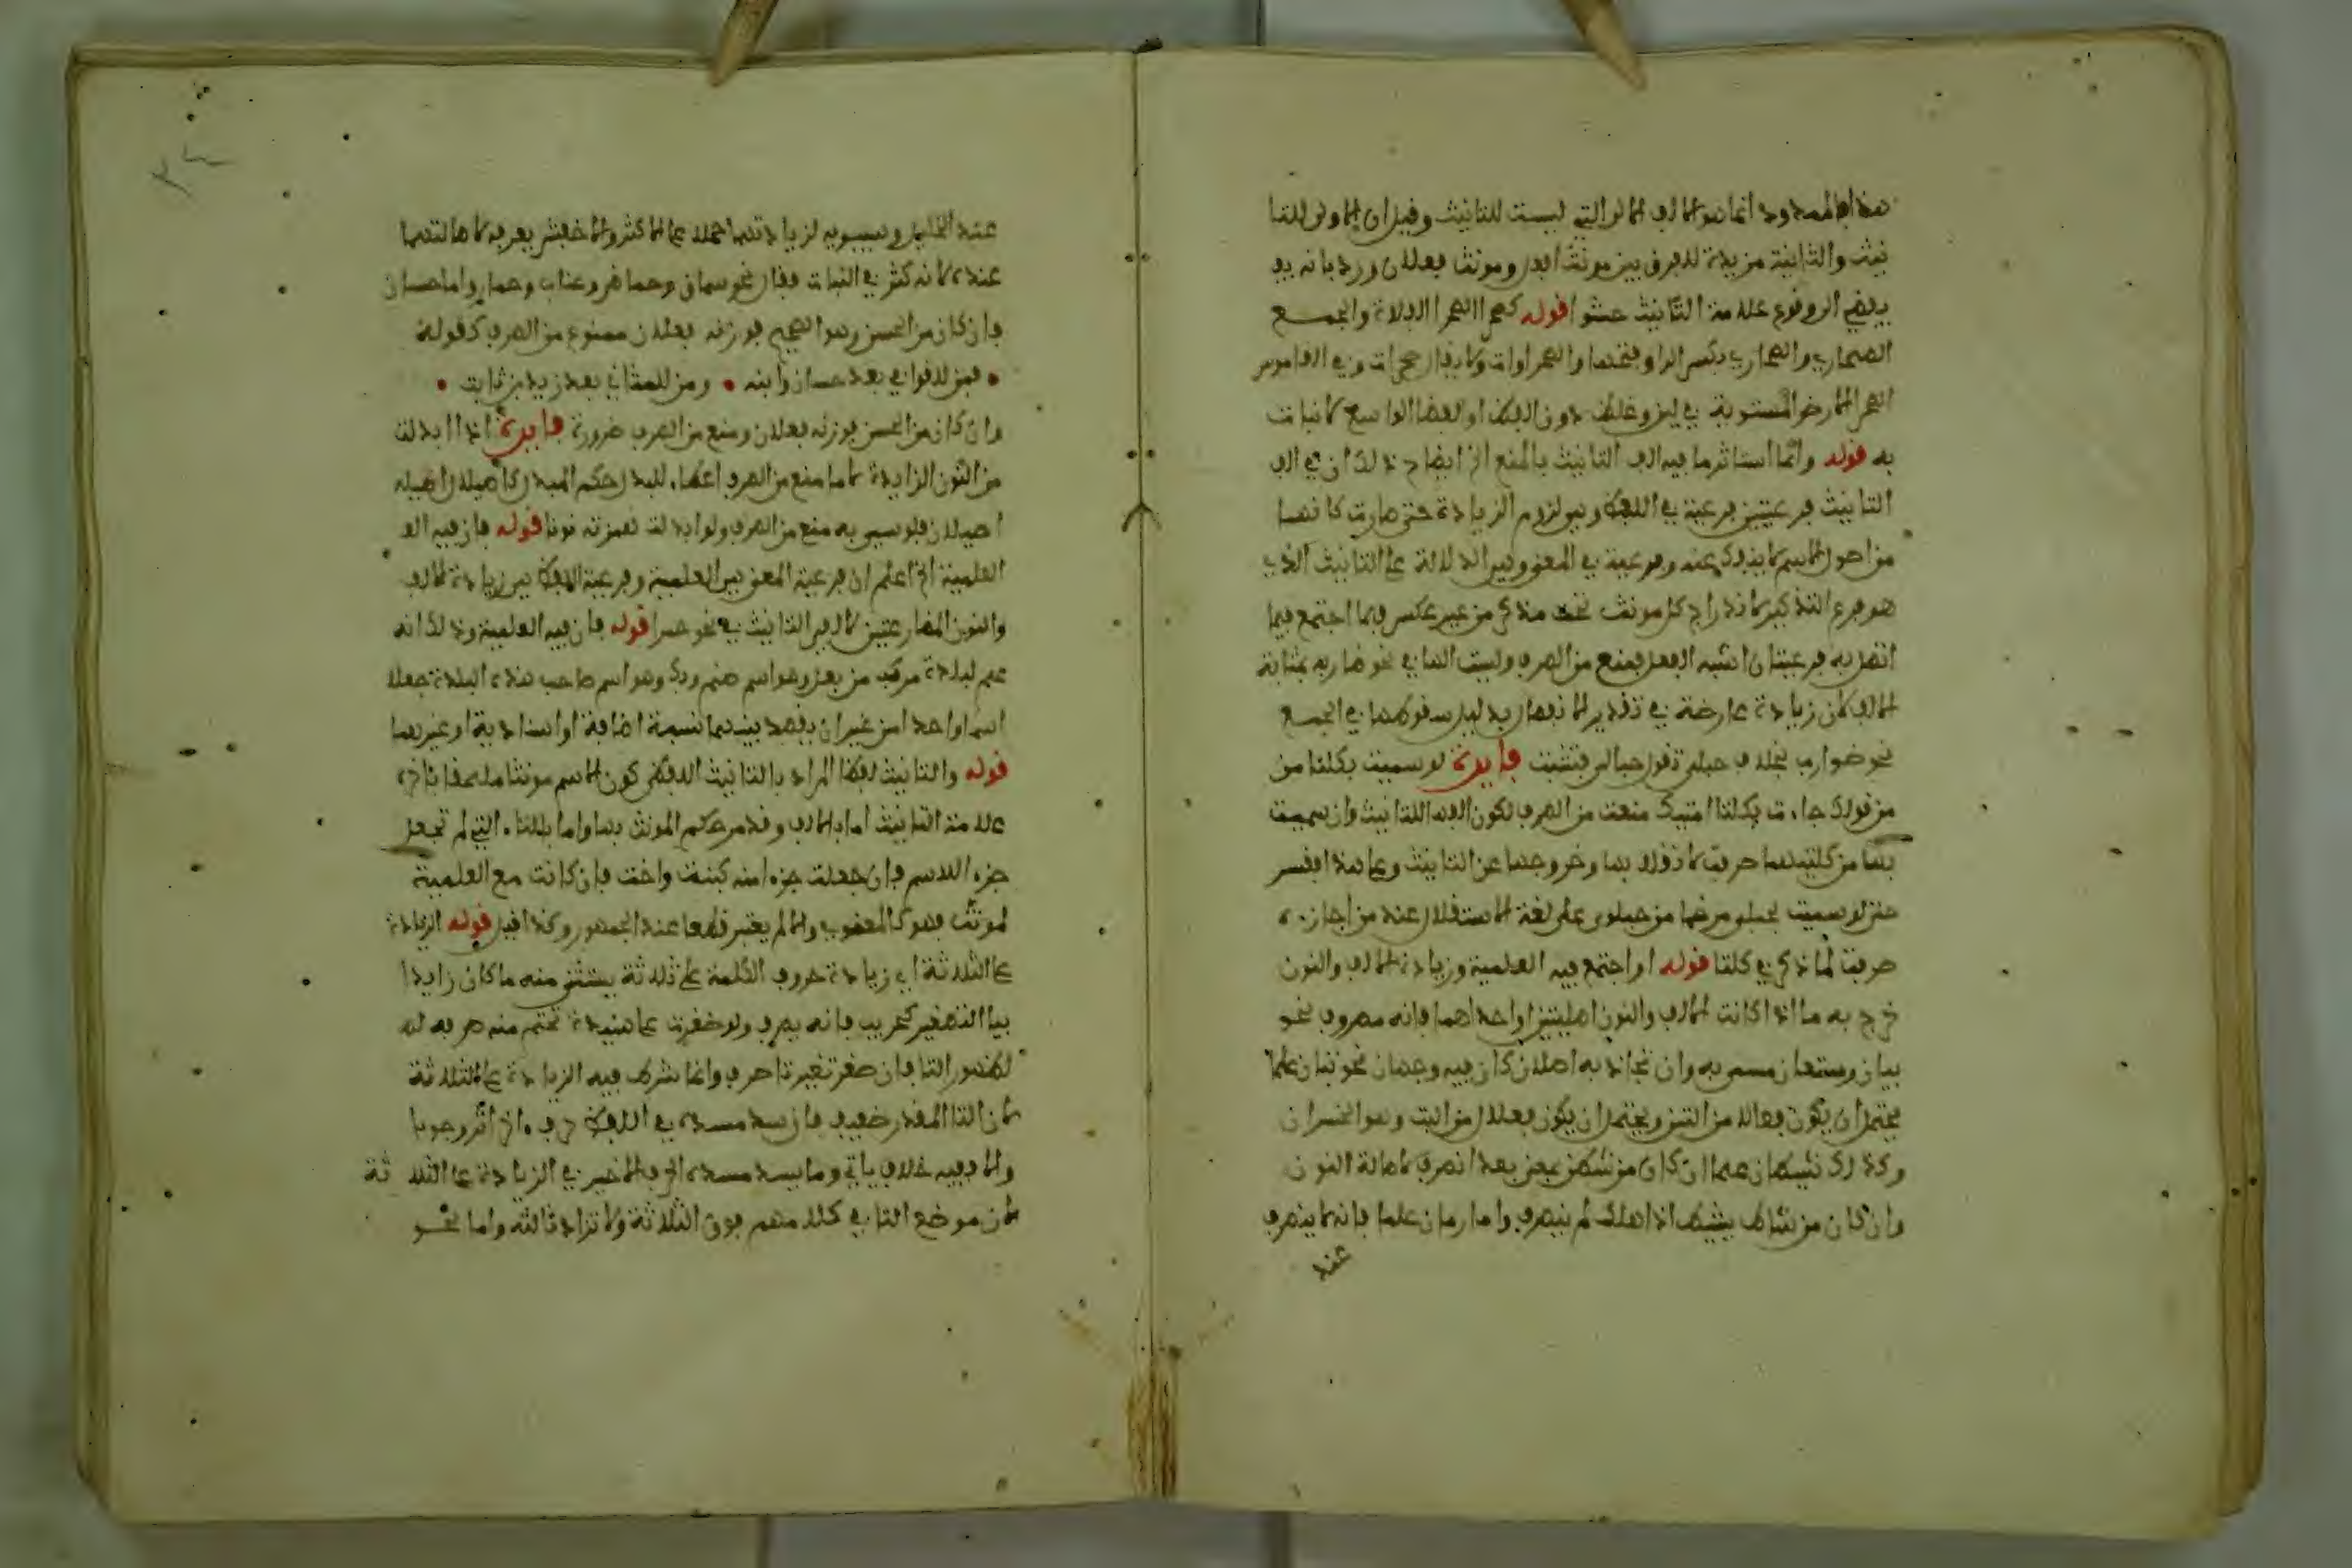 هذا الممدود انما هو الالف الاولى التي ليست للتانيث وقيل ان الاولى للتا
نيث والثانية مزيدة للفرق بين مونث افعل ومونث فعلان ورد بانه يو
يفضي الى وقوع علامة التانيث حشوا قوله كصحرا الصحرا الفلاة والجمع
الصحاري والصحارى بكسر الرا وفتحها والصحراوات ولا يقال صحرات وفي القاموس
الصحرا الارض المستوية في لين وغلظ دون القف او الفضا الواسع لا نبات
به قوله وانما استاثر ما فيه الف التانيث بالمنع الخ ايضاح ذلك ان في الف
التانيث فرعيتين فرعية في اللفظ وهي لزوم الزيادة حتى صارت كانها
من اصول الاسم لا ينفك عنه وفرعية في المعنى وهي الدلالة على التانيث الذي
هو فرع التذكير لاندراج كل مونث تحت مذكر من غير عكس فلما اجتمع فيما
اتصل به فرعيتان اشبه الفعل فمنع من الصرف وليست التا في نحو ضاربه بمثابة
الالف لان زيادة عارضة في تقدير الانفصال بدليل سقوطها في الجمع
نحو ضوارب بخلاف حبلى تقول حبالى فتثبت فايدة لو سميت بكلتا من
من قولك جاءت بكلتا امتيك منعت من الصرف لكون الفها للتانيث وان سميت
بها من كلتيهما صرفت لانقلابها وخروجها عن التانيث وعلى هذا ففسر
حتى لو سميت بحبلى مرخما من حبلوى على لغة الاستقلال عند من اجازه
صرفت لما ذكر في كلتا قوله او اجتمع فيه العلمية وزيادة الالف والنون
خرج به ما اذا كانت الالف والنون اصليتين او احداهما فانه مصروف نحو
بيان وستعان مسمى به وان تجاذبه اصلان كان فيه وجهان نحو تبان علما
يحتمل ان يكون فعالا من التبن ويحتمل ان يكون فعلان من التب وهو الخسران
وكذلك شيطان علما ان كان من شطن بمعنى بعد انصرف لاصالة النون
وان كان من شاط يشيط اذا هلك لم ينصرف واما رمان علما فانه لا ينصرف
عند
عند الخليل وسيبويه لزيادتهما حملا على الاكثر والاخفش يصرفه لاصالتهما
عنده لانه كثر في النبات فعال نحو سماق وحماض وعناب وحمار واما حسان
فان كان من الحسن وهو الصحيح فوزنه فعلان ممنوع من الصرف كقوله
• فمن للقوافي بعد حسان وابنه • ومن للمثاني بعد زيد بن ثابت •
وان كان من الحسن فوزنه فعلان ومنع من الصرف ضرورة فايدة اذا ابدلت
من النون الزايدة لاما منع من الصرف اعطاء للبدل حكم المبدل كاصيلال اصله
اصيلان فلو سمي به منع من الصرف ولو ابدلت همزته نونا قوله فان فيه الع
العلمية الخ اعلم ان فرعية المعنى هي العلمية وفرعية اللفظ هي زيادة الالف
والنون المضارعتين لالفي التانيث في نحو حمرا قوله فان فيه العلمية وذلك انه
علم لبلدة مركب من بعل وهو اسم صنم وبك وهو اسم صاحب هذه البلدة جعلا
اسما واحدا من غير ان يقصد بينهما نسبة اضافة او اسنادية او غيرهما
قوله والتانيث لفظا المراد بالتانيث اللفظي كون الاسم مونثا ملحقا باخره
علامة التانيث اما بالالف وقد مر حكم المونث بها واما بالتاء التي لم تجعل
جزء الاسم فان جعلت جزءا منه كبنت واخت فان كانت مع العلمية
لمونث فهو كالمعنوي والا لم يعتبر قطعا عند الجمهور وكذا قيل قوله الزيادة
على الثلاثة اي زيادة حروف الكلمة على ثلاثة يستثنى منه ما كان زايدا
بيا التصغير كحريب فانه يصرف ولو صغرت على هنيدة تحتم منه صرفه له
لظهور التا فان صغر تغيرتا صرف وانما شرط فيه الزيادة على الثلاثة
لان التا المقدر ضعيف فان سد مسده في اللفظ حرف اخر اثر وجوبا
والا ففيه خلاف ياتي وما يسد مسده الحرف الاخير في الزيادة على الثلا ثة
لان موضع التا في كلامهم فوق الثلاثة ولا تزاد ثالثه واما نحو